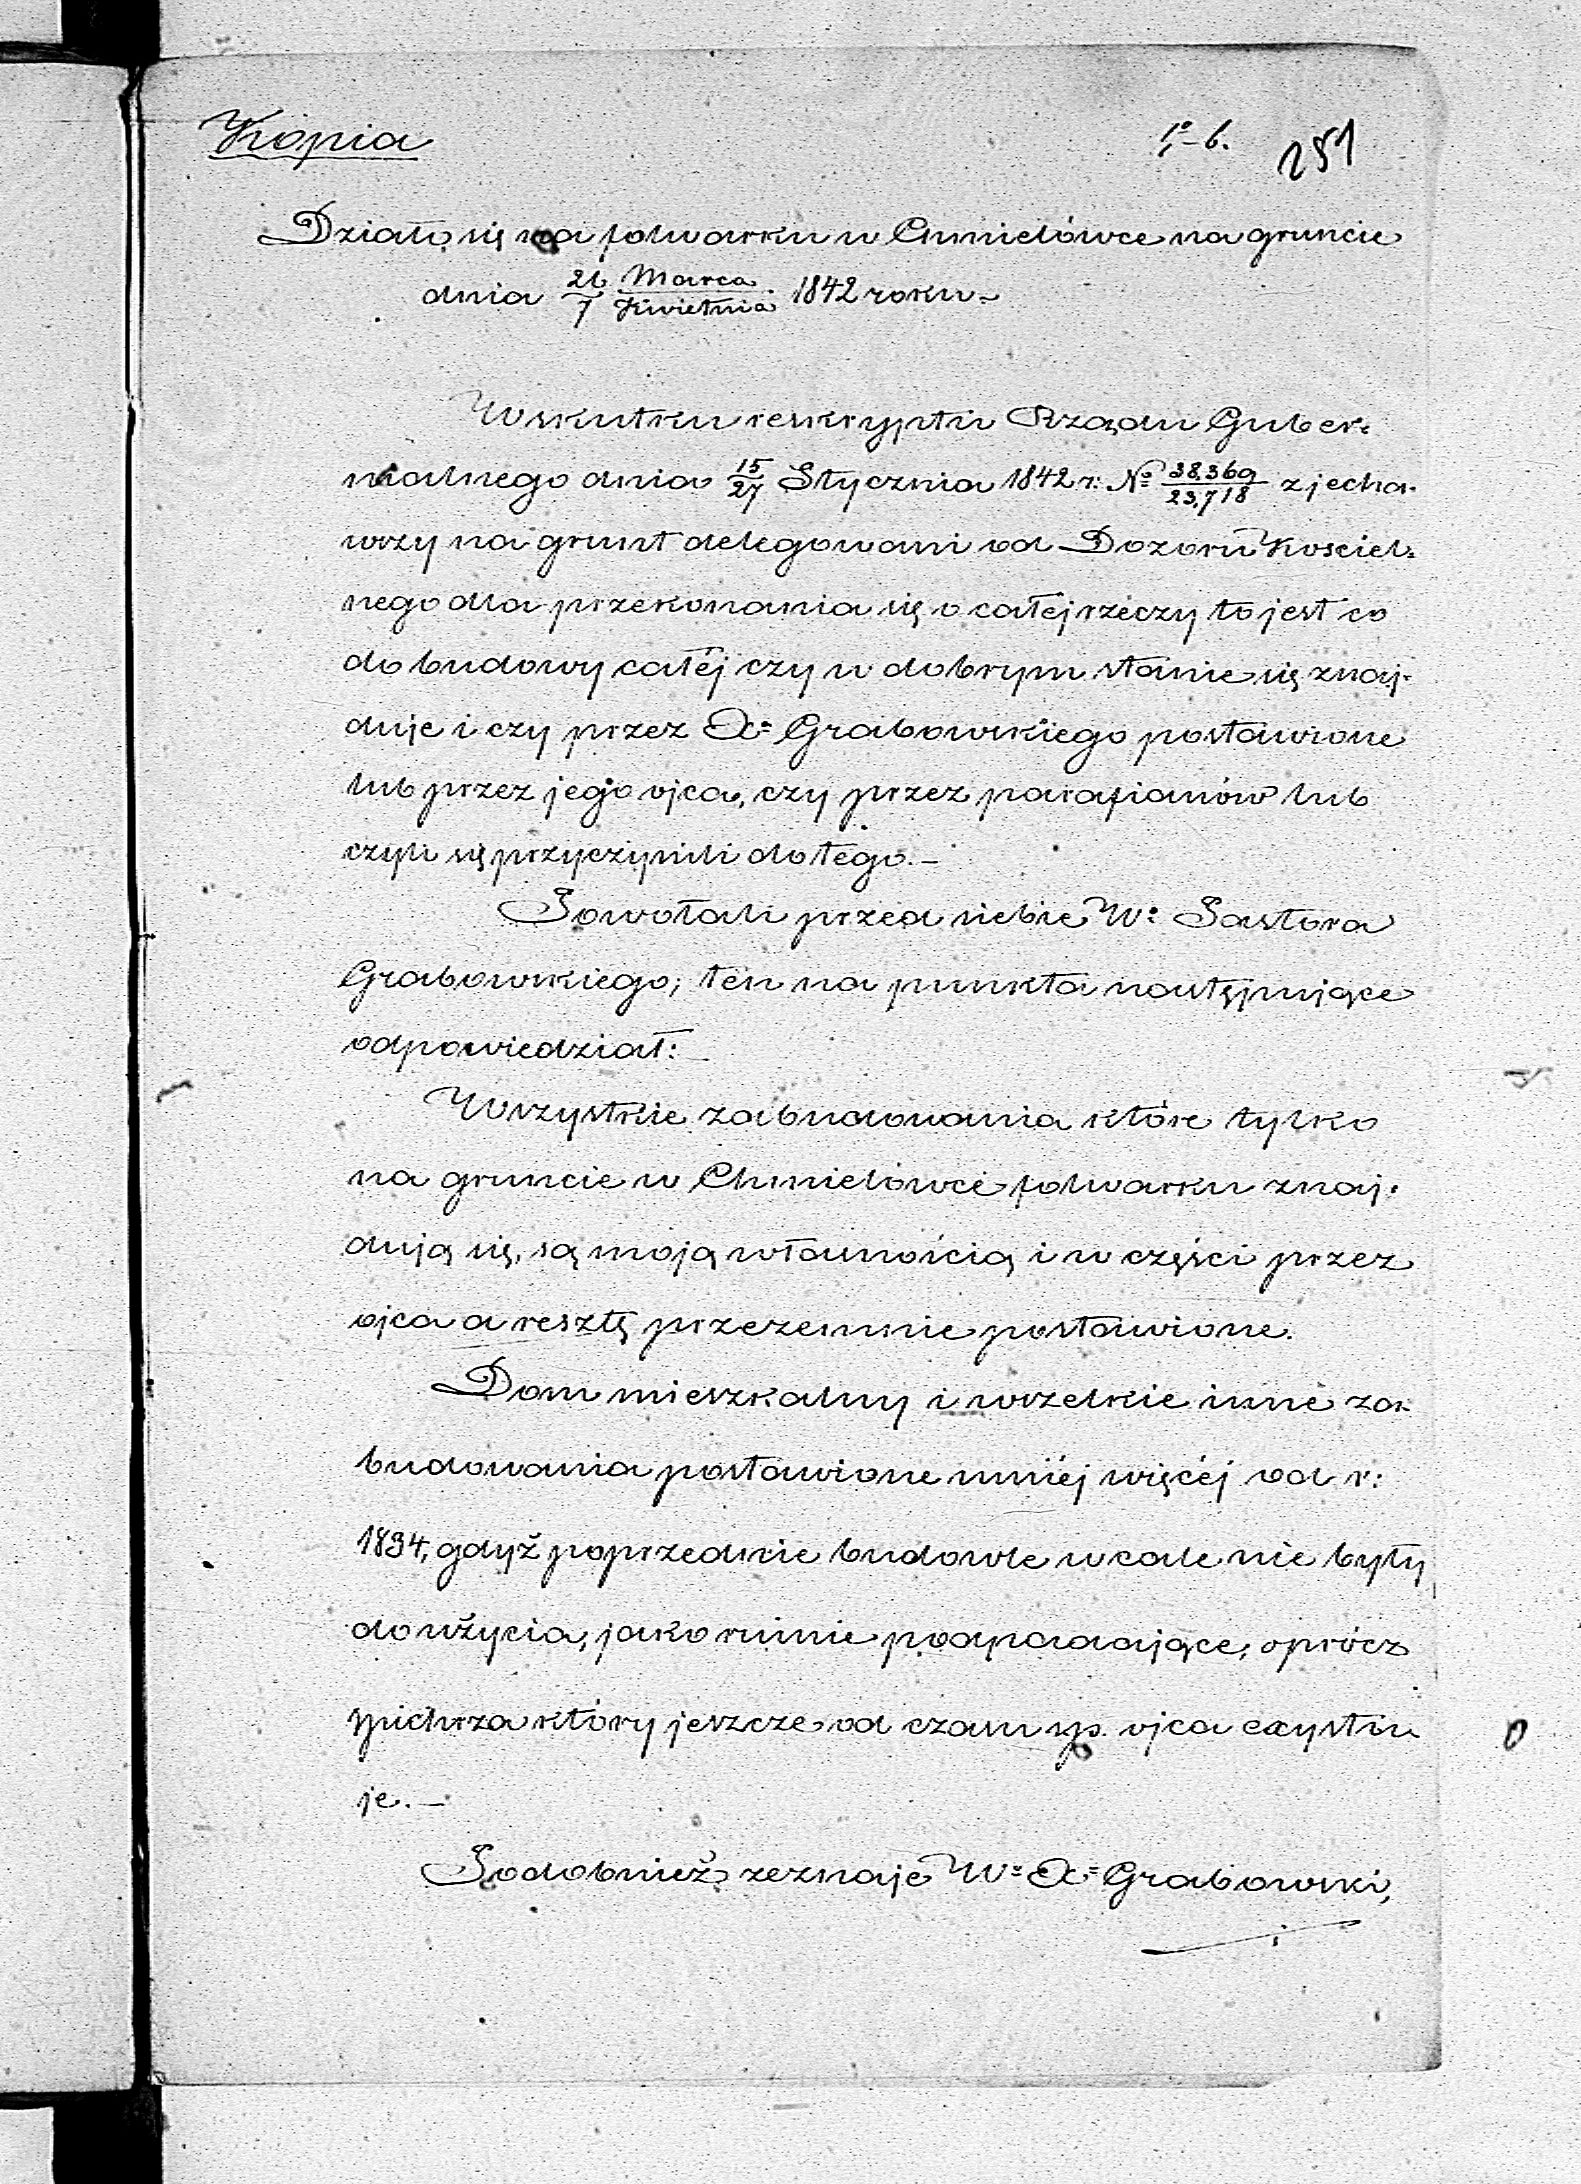 Kopia
1º-6. 251
Działo się na folwarku w Chmielówce na gruncie
dnia 26 Marca / 7 Kwietnia 1842 roku.-
W skutku reskryptu Rządu Guber-
nialnego dnia 15/27 Stycznia 1842 r: Nº 38,369/23,718 zjecha-
wszy na grunt delegowani od Dozoru Kościel-
nego dla przekonania się o całej rzeczy to jest co
do budowy całéj czy w dobrym stanie się znaj-
duje i czy przez X: Grabowskiego postawione
lub przez jego ojca, czy przez parafianów lub
czyli się przyczynili do tego.-
Powołali przed siebie W: Pastora
Grabowskiego; ten na punkta następujące
odpowiedział:
Wszystkie zabudowania które tylko
na gruncie w Chmielówce folwarku znaj-
dują się, są moją własnością i w części przez
ojca a resztę przezemnie postawione.
Dom mieszkalny i wszelkie inne za-
budowania postawione mniéj więcéj od r:
1834, gdyż poprzednie budowle wcale nie były
do użycia, jako ruinie podpadające, oprócz
spichrza który jeszcze od czasu sp. ojca exystu
je.-
Podobnież zeznaje W: X: Grabowski,